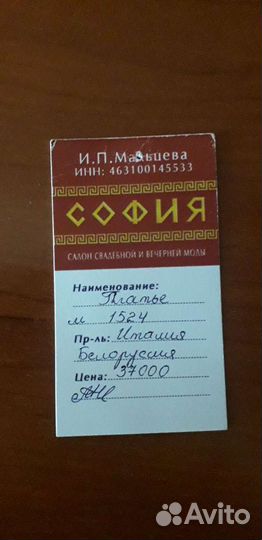 И.П.Мальцева
ИНН: 463100145533
СОФИЯ
САЛОН СВАДЕБНОЙ И ВЕЧЕРНЕЙ МОДЫ
Наименование:
Платье
м 1524
Пр-ль: Италия
Белоруссия
Цена: 37000
Avito